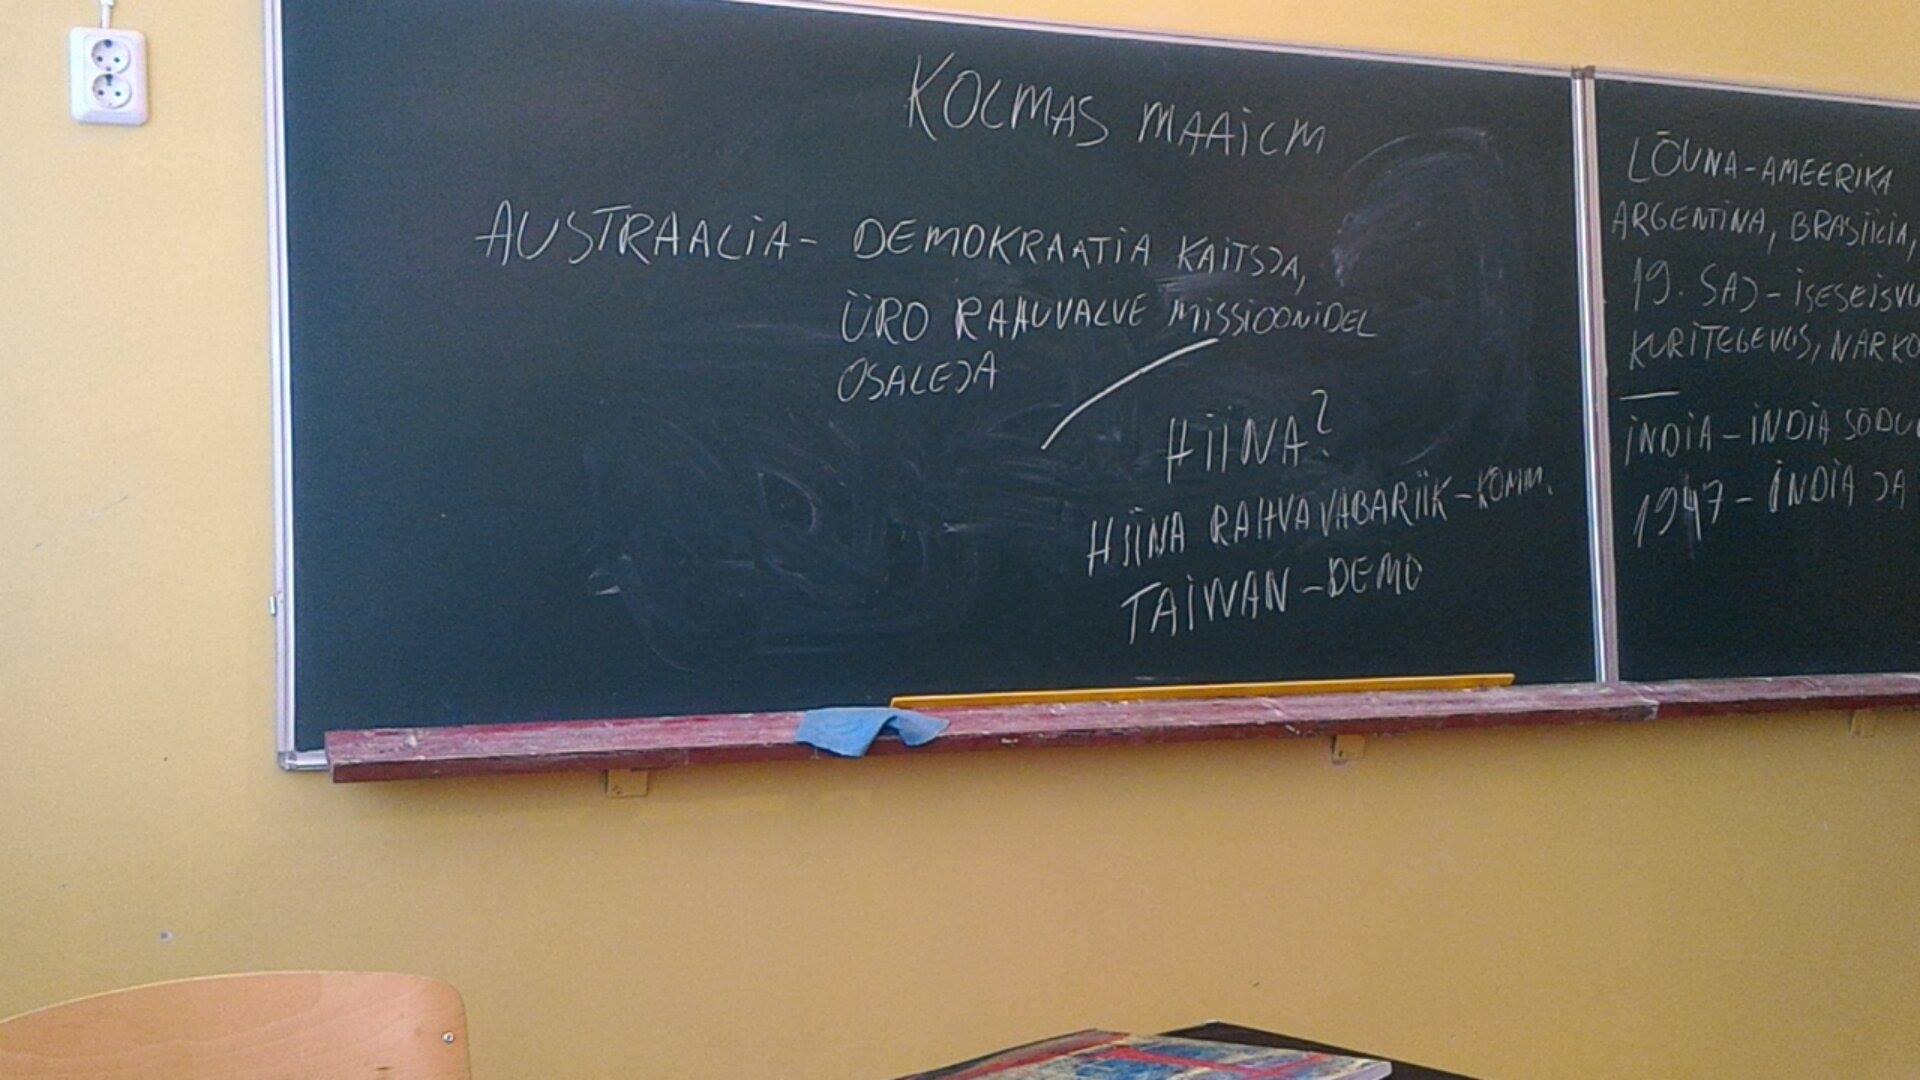 KOLMAS MAAILM
AUSTRAALIA - DEMOKRAATIA KAITSJA,
ÜRO RAHUVALVE MISSIOONIDEL
OSALEJA
HIINA?
HIINA RAHVAVABARIIK - KOMM.
TAIWAN - DEMO
LÕUNA-AMEERIKA
ARGENTINA, BRASIILIA,
19. SAJ - ISESEISVU
KURITEGEVUS, NARKO
INDIA - INDIA SÕDU
1947 - INDIA JA